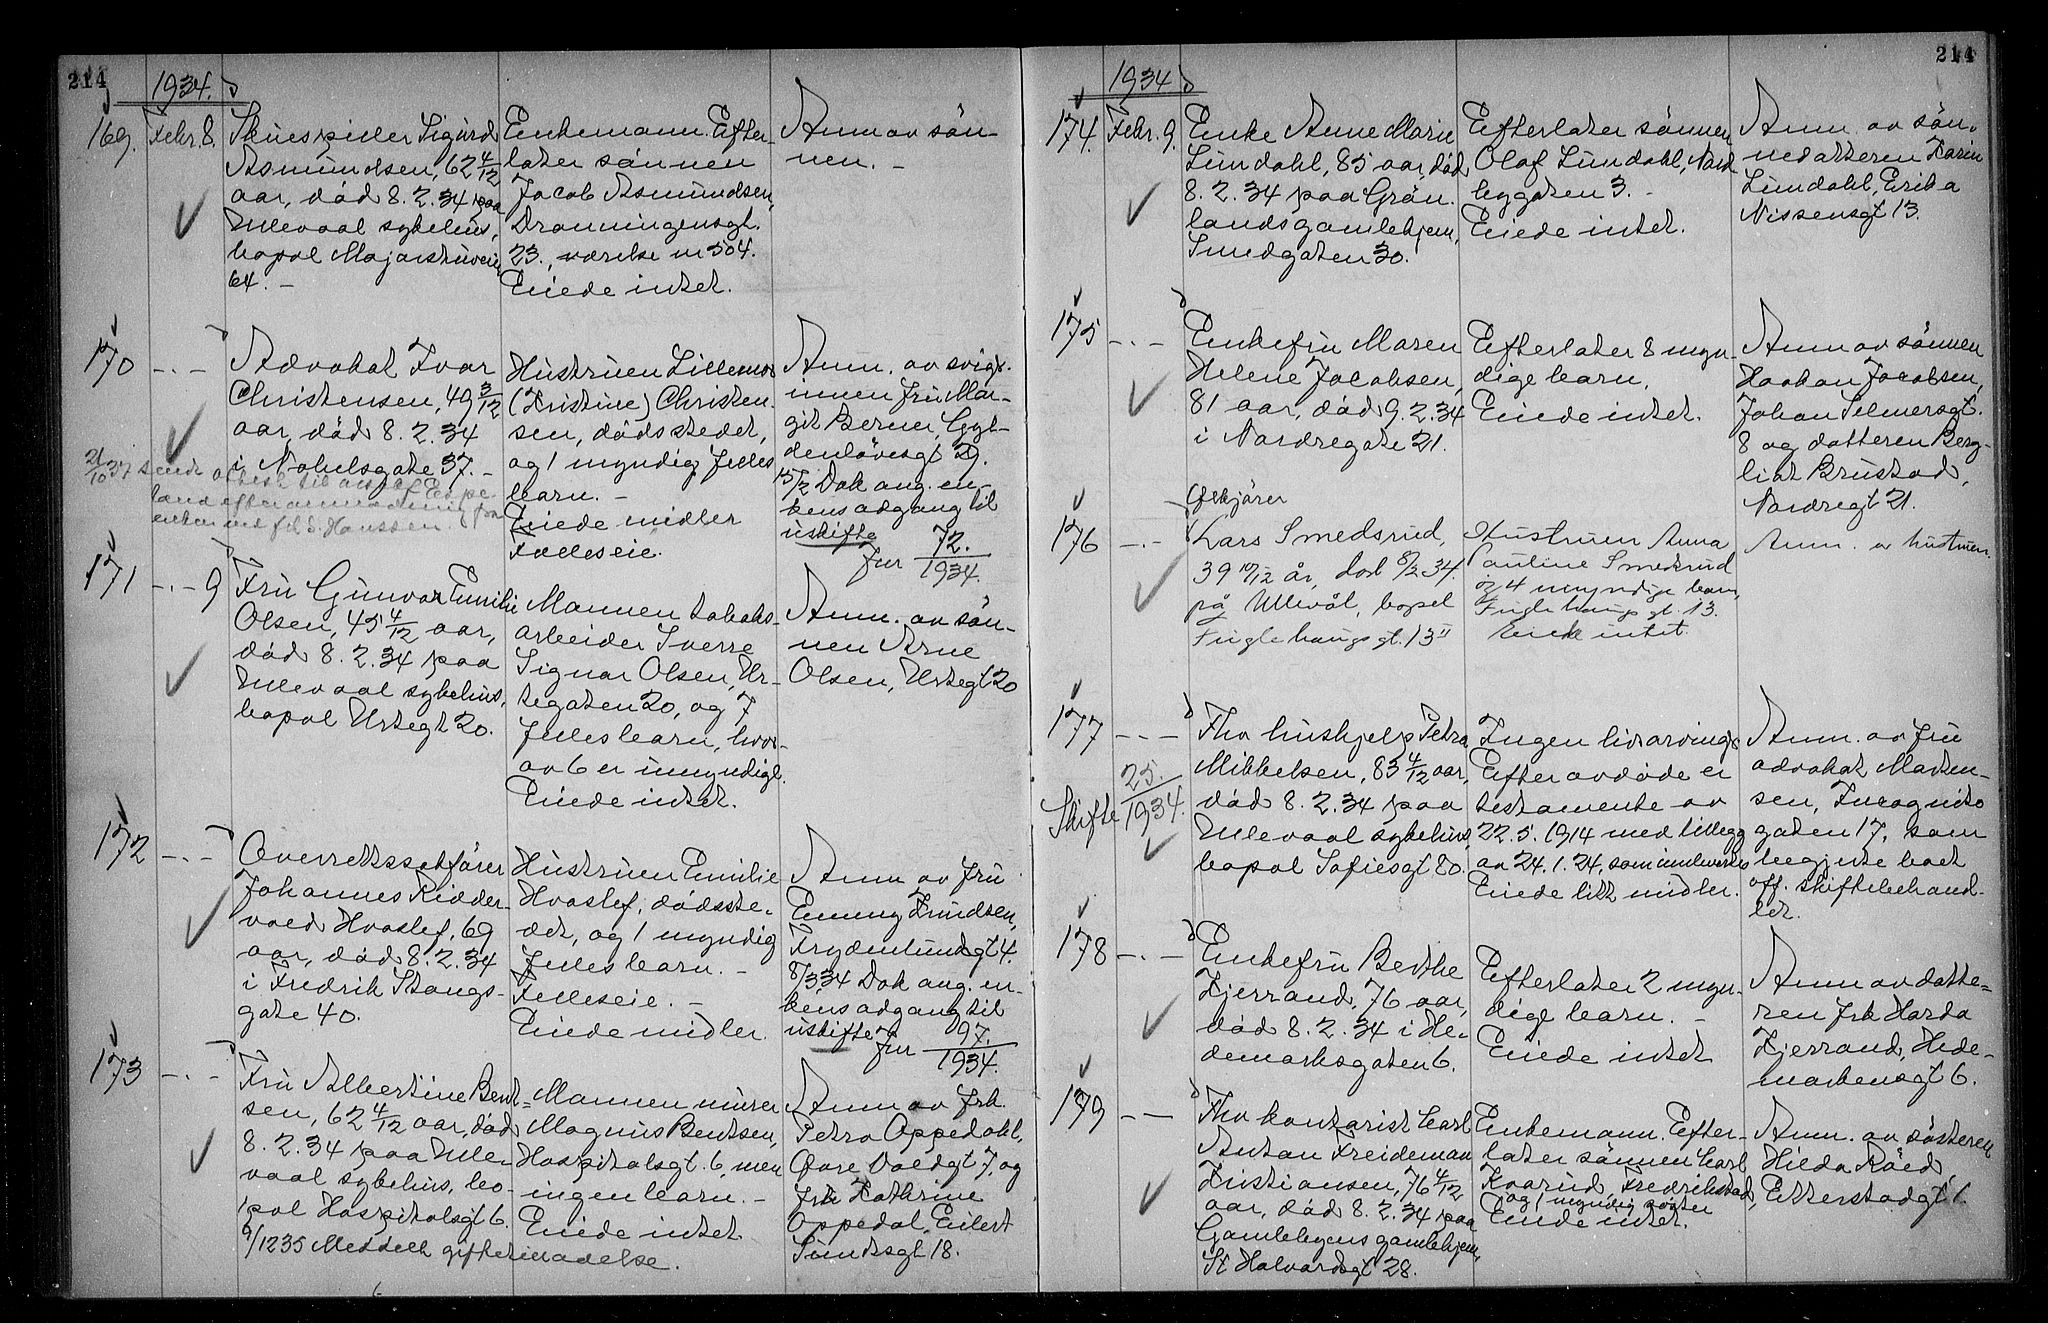 214
1934.
169.
Febr. 8.
Skuespiller Sigurd
Asmundsen, 62 4/12
aar, død 8. 2. 34 paa
Ullevaal sykehus,
bopol Majorstuveien
64. -
Enkemann. Efter-
later sønnen
Jacob Asmundsen,
Dronningensgt.
23., værelse nr 504.
Eiede intet.
Anm. av søn-
nen. -
170
- . -
Advokat Ivar
Christensen, 49 3/12
aar, død 8. 2. 34
i Nobelsgate 37. -
21/10 37 sendt attest til
land efter anmodning fra
enken ved S. Hanssen.
Hustruen Lillemor
(Kristine) Christen-
sen, dødsstedet,
og 1 myndig felles
barn. -
Eiede midler
Felleseie.
Anm. av svig-
innen fru Mar-
git Berner, Gyl-
denløvesgt 29.
15/2 Dok ang. en-
kens adgang til
uskifte
Jnr 72./1934.
171
- . - 9
Fru Gunvor Emilie
Olsen, 45 4/12 aar,
død 8. 2. 34 paa
Ullevaal sykehus,
bopol Urtegt 20.
Mannen tobaks-
arbeider Sverre
Signar Olsen, Ur-
tegaten 20, og 7
felles barn, hvor-
av 6 er umyndige.
Eiede intet.
Anm. av søn-
nen Arne
Olsen, Urtegt 20
172
- . -
Overrettssakfører
Johannes Ridder-
vold Hvoslef, 69
aar, død 8. 2. 34
i Fredrik Stangs-
gate 40.
Hustruen Emilie
Hvoslef, dødsste-
det, og 1 myndig
felles barn. -
Felleseie. -
Eiede midler.
Anm av fru
Emmy Knudsen,
Frydenlundgt 4.
8/3 34 Dok ang. en-
kens adgang til
uskifte Jnr 97./1934.
173
- . -
Fru Albertine Bent-
sen, 62 4/12 aar, død
8. 2. 34 paa Ulle-
vaal sykehus, bo-
pol Hospitalsgt 6.
/12 35 Meddelt giftetilladelse.
Mannen murer
Magnus Bentsen,
Hospitalsgt. 6, men
ingen barn. -
Eiede intet
Anm av frk.
Petra Oppedahl,
Øvre Voldgt 7, og
frk Kathrine
Oppedal, Eilert
Sundtsgt 18.
214
1934
174.
Febr. 9.
Enke Anne Marie
Lundahl, 85 aar, død
8. 2. 34 paa Grøn-
landsgamlehjem,
Smedgaten 30.
Efterlater sønnen
Olaf Lundahl, Nord-
bygaten 3. -
Eiede intet.
Anm. av søn-
nedatteren Karin
Lundahl, Erika
Nissensgt 13.
175
- . -
Enkefru Maren
Helene Jacobsen,
81 aar, død 9. 2. 34
i Nordregate 21.
Efterlater 8 myn-
dige barn.
Eiede intet.
Anm av sønnen
Haakon Jacobsen,
Johan Selmersgt.
8 og datteren Berg-
liot Brustad,
Nordregt 21.
176
- . -
Lars Smedsrud,
39 10/12 år, død 8/2 34.
på Ullevål, bopel
Fuglehaugsgt. 13 II
Hustruen Anna
Pauline Smedsrud
og 4 umyndige barn,
Fuglehaugsgt. 13.
Eiede intet.
Anm. av hustruen.
177
- - -
Skifte 25./1934.
Fhv hushjelp Petra
Mikkelsen, 83 4/12 aar,
død 8. 2. 34 paa
Ullevaal sykehus,
bopol Sofiesgt 80.
Ingen livsarvinger
Efter avdøde er
testamente av
22. 5. 1914 med tillegg
av 24. 1. 24, som innleveres
Eiede litt midler.
Anm. av fru
advokat Marten-
sen, Incognito
gaten 17, som
begjerte boet
off. skiftebehand-
let.
178
- . -
Enkefru Berthe
Kjerrand, 76 aar,
død 8. 2. 34 i He-
demarksgaten 6.
Efterlater 2 myn-
dige barn. -
Eiede intet
Anm av datte-
ren frk Harda
Kjerrand, Hede-
markensgt 6.
179
- -
Fhv kontorist Carl
Anton Freideman
Kristiansen, 76 4/12
aar, død 8. 2. 34 paa
Gamlebyens gamlehjem,
St Halvardsgt 28.
Enkemann. Efter-
later sønnen Carl
Kvarud, Fredrikstad,
og 1 myndig datter
Eiede intet.
Anm. av søsteren
Hilda Røed,
Etterstadgt 1.